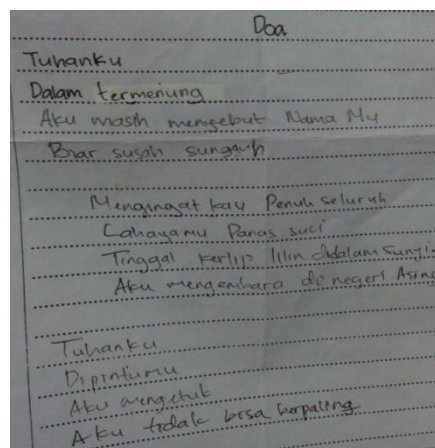 Doa
Tuhanku
Dalam termenung
Aku masih menyebut Nama Mu
Biar susah sungguh
Mengingat kau Penuh seluruh
Cahayamu Panas suci
Tinggal kerlip lilin didalam sunyi
Aku mengembara di negeri Asing
Tuhanku
Dipintumu
Aku mengetuk
Aku tidak bisa berpaling